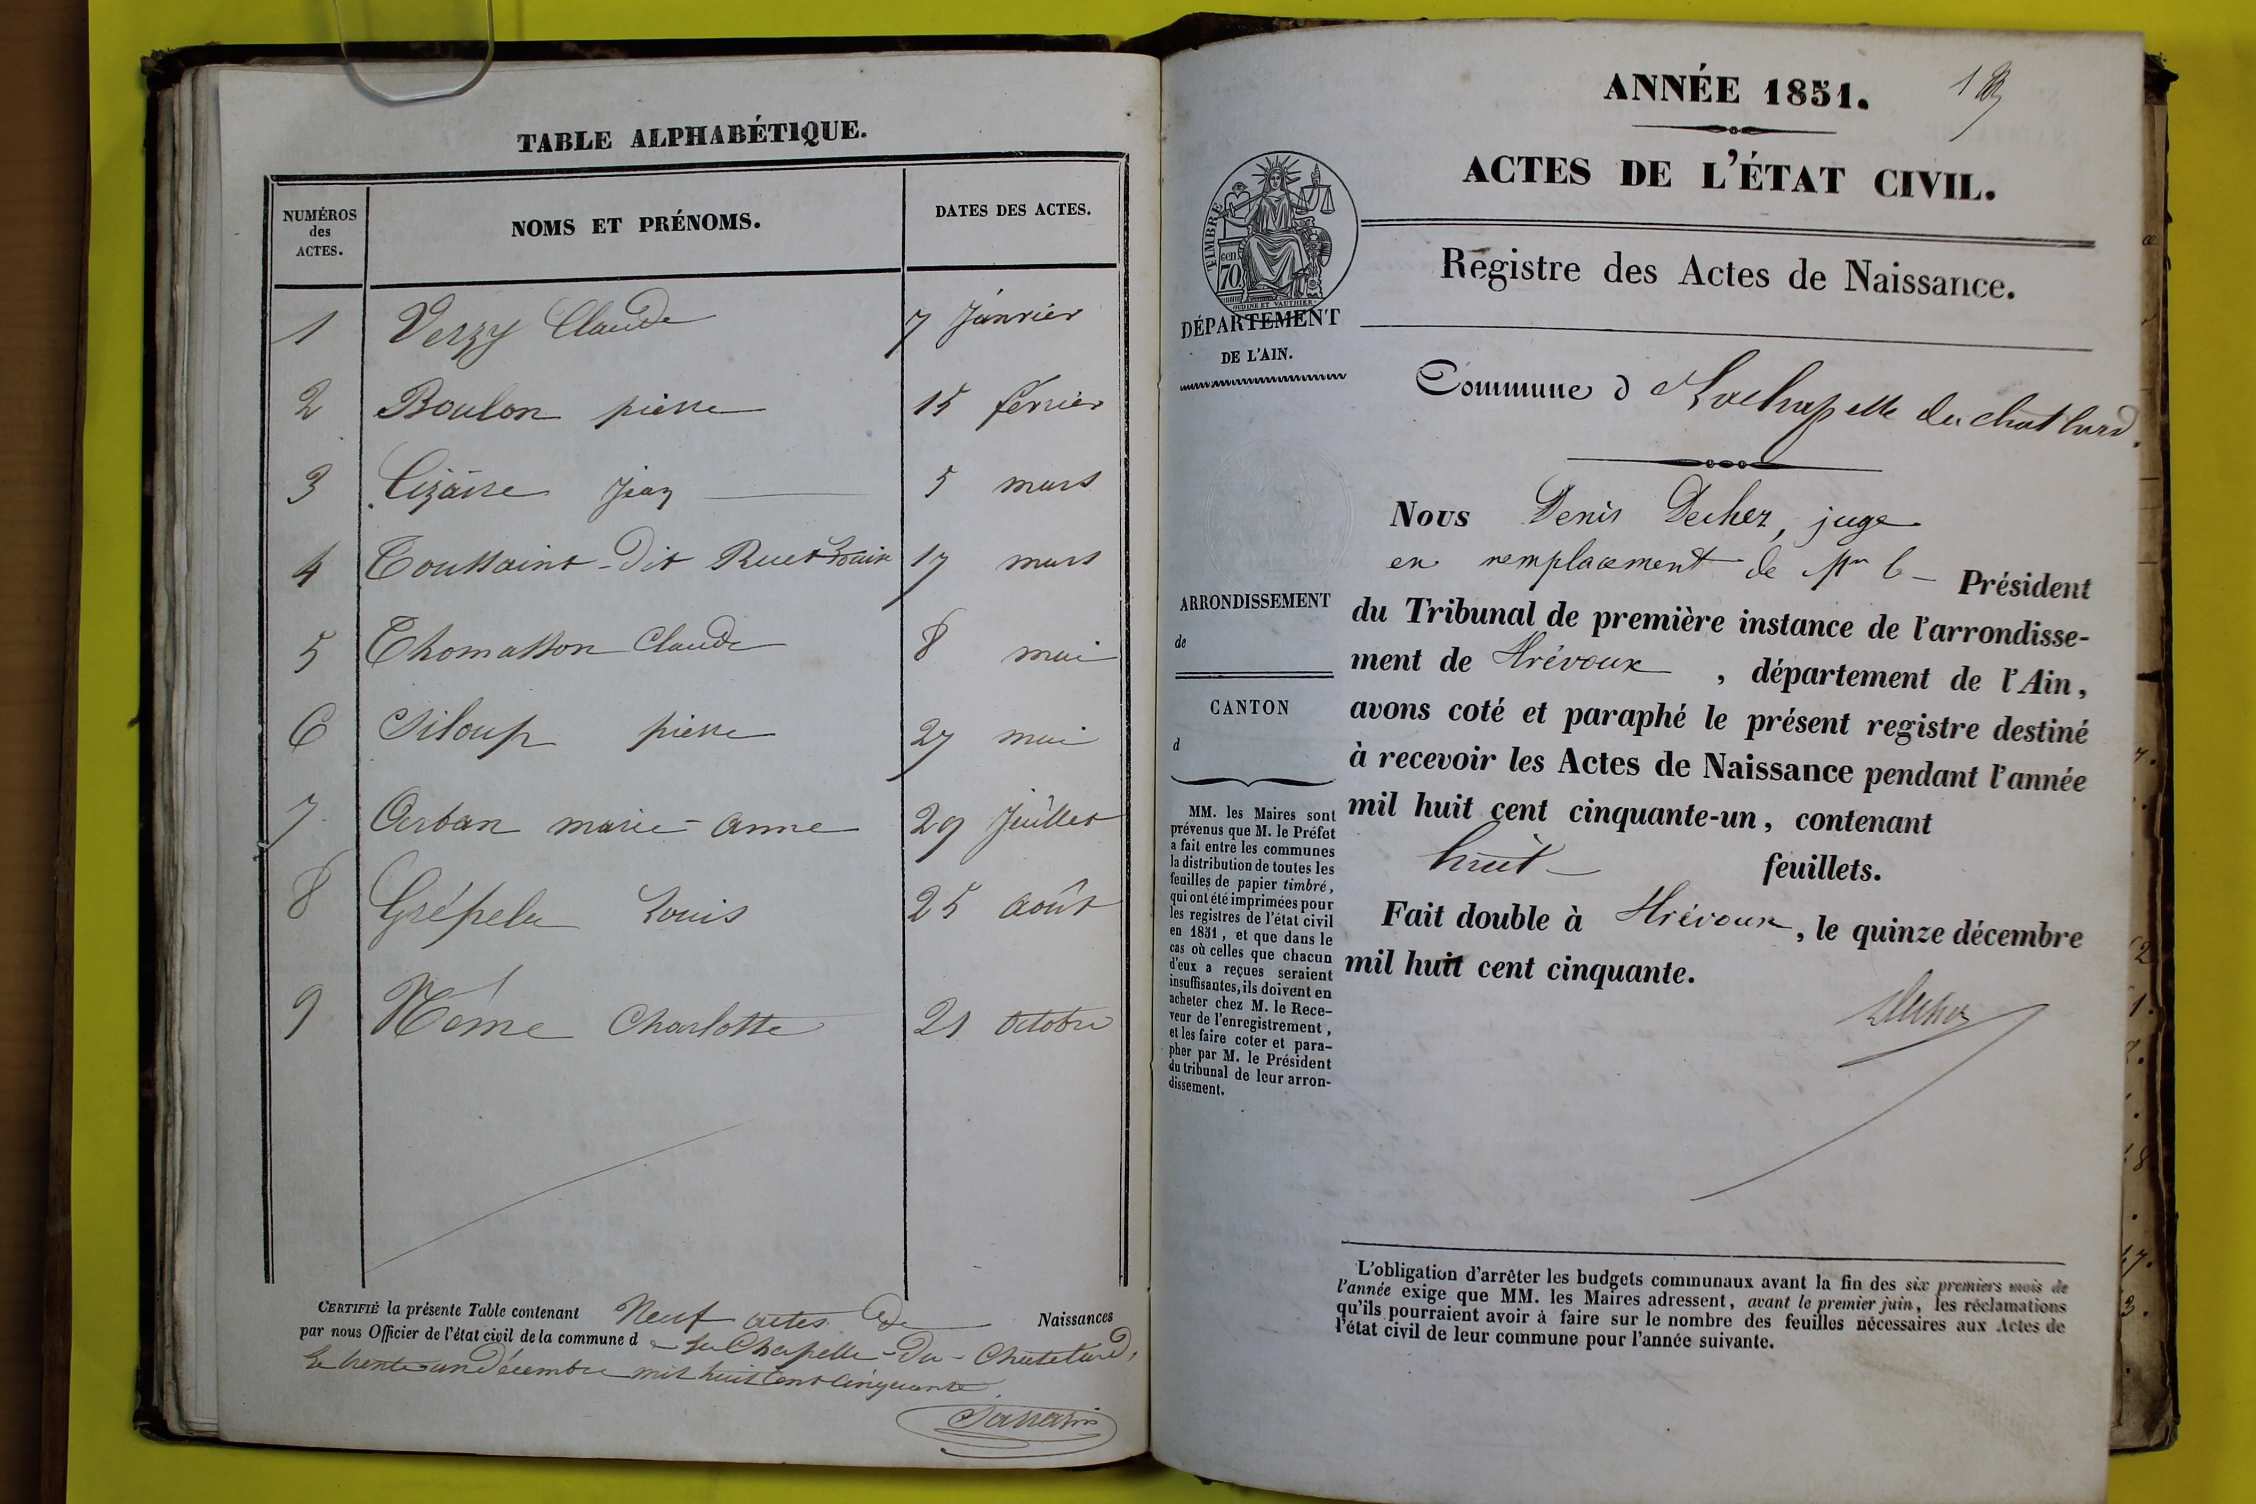 TABLE ALPHABÉTIQUE.
NUMÉROS
des
ACTES.
NOMS ET PRÉNOMS.
DATES DES ACTES.
1 Verzy Claude 7 Janvier
2 Boulon pierre 15 fevrier
3 Lizàire Jean 5 mars
4 Toussaint-Dit Ruet Louis 17 mars
5 Thomasson Claude 8 mai
6 Siloup pierre 27 mai
7 Arban marie-anne 29 Juillet
8 Grépela Louis 25 août
9 Néme Charlotte 21 octobre
CERTIFIÉ la présente Table contenant Neuf actes De Naissances
par nous Officier de l'état civil de la commune d e La Chapelle-Du-Chatelard,
le trente un Décembre mil huit Cent Cinquante.
ANNÉE 1851.
1
ACTES DE L'ÉTAT CIVIL.
TIMBRE
70 cen
OUDINÉ ET VAUTHIER
Registre des Actes de Naissance.
DÉPARTEMENT
DE L'AIN.
Commune d Lachapelle du chatlard.
Nous Denis Decher, juge
en remplacement de Mr le Président
du Tribunal de première instance de l'arrondisse-
ment de Trévoux, département de l'Ain,
avons coté et paraphé le présent registre destiné
à recevoir les Actes de Naissance pendant l'année
mil huit cent cinquante-un, contenant
huit feuillets.
Fait double à Trévoux, le quinze décembre
mil huit cent cinquante.
Decher
ARRONDISSEMENT
de
CANTON
d
MM. les Maires sont
prévenus que M. le Préfet
a fait entre les communes
la distribution de toutes les
feuilles de papier timbré,
qui ont été imprimées pour
les registres de l'état civil
en 1851, et que dans le
cas où celles que chacun
d'eux a reçues seraient
insuffisantes, ils doivent en
acheter chez M. le Rece-
veur de l'enregistrement,
et les faire coter et para-
pher par M. le Président
du tribunal de leur arron-
dissement.
L'obligation d'arrêter les budgets communaux avant la fin des six premiers mois de
l'année exige que MM. les Maires adressent, avant le premier juin, les réclamations
qu'ils pourraient avoir à faire sur le nombre des feuilles nécessaires aux Actes de
l'état civil de leur commune pour l'année suivante.